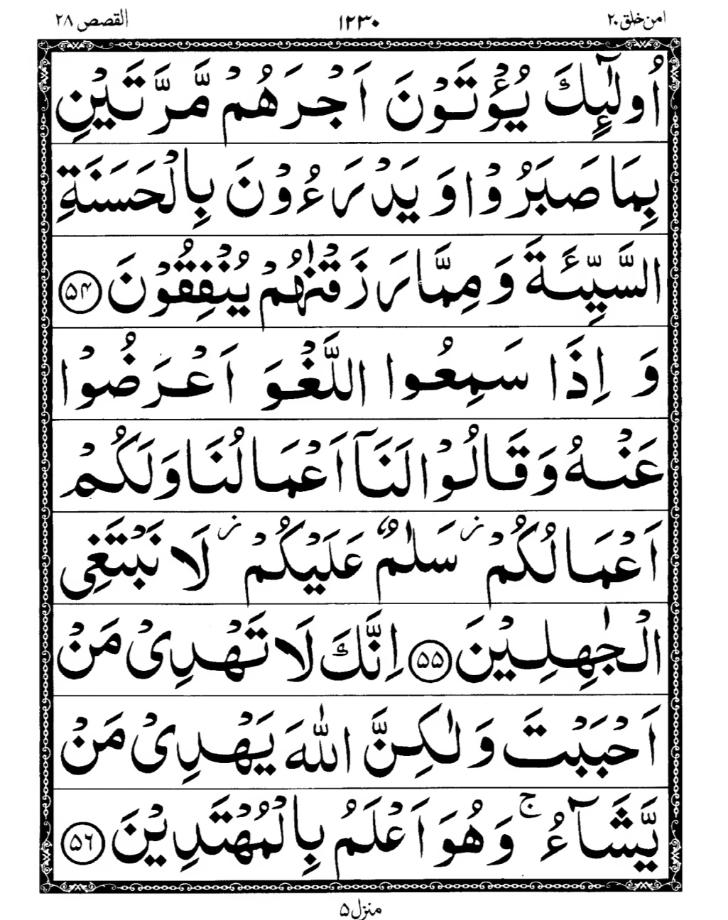 امن خلق ۲۰ ۱۲۳۰ القصص ۲۸
اُولٰٓئِكَ يُؤْتَوْنَ اَجْرَهُمْ مَّرَّتَيْنِ
بِمَا صَبَرُوْا وَ يَدْرَءُوْنَ بِالْحَسَنَةِ
السَّيِّئَةَ وَ مِمَّا رَزَقْنٰهُمْ يُنْفِقُوْنَ ۵۴
وَ اِذَا سَمِعُوا اللَّغْوَ اَعْرَضُوْا
عَنْهُ وَ قَالُوْا لَنَآ اَعْمَالُنَا وَلَكُمْ
اَعْمَالُكُمْ ز سَلٰمٌ عَلَيْكُمْ ز لَا نَبْتَغِى
الْجٰهِلِيْنَ ۵۵ اِنَّكَ لَا تَهْدِىْ مَنْ
اَحْبَبْتَ وَ لٰكِنَّ اللّٰهَ يَهْدِىْ مَنْ
يَّشَآءُ ج وَهُوَ اَعْلَمُ بِالْمُهْتَدِيْنَ ۵۶
منزل ۵